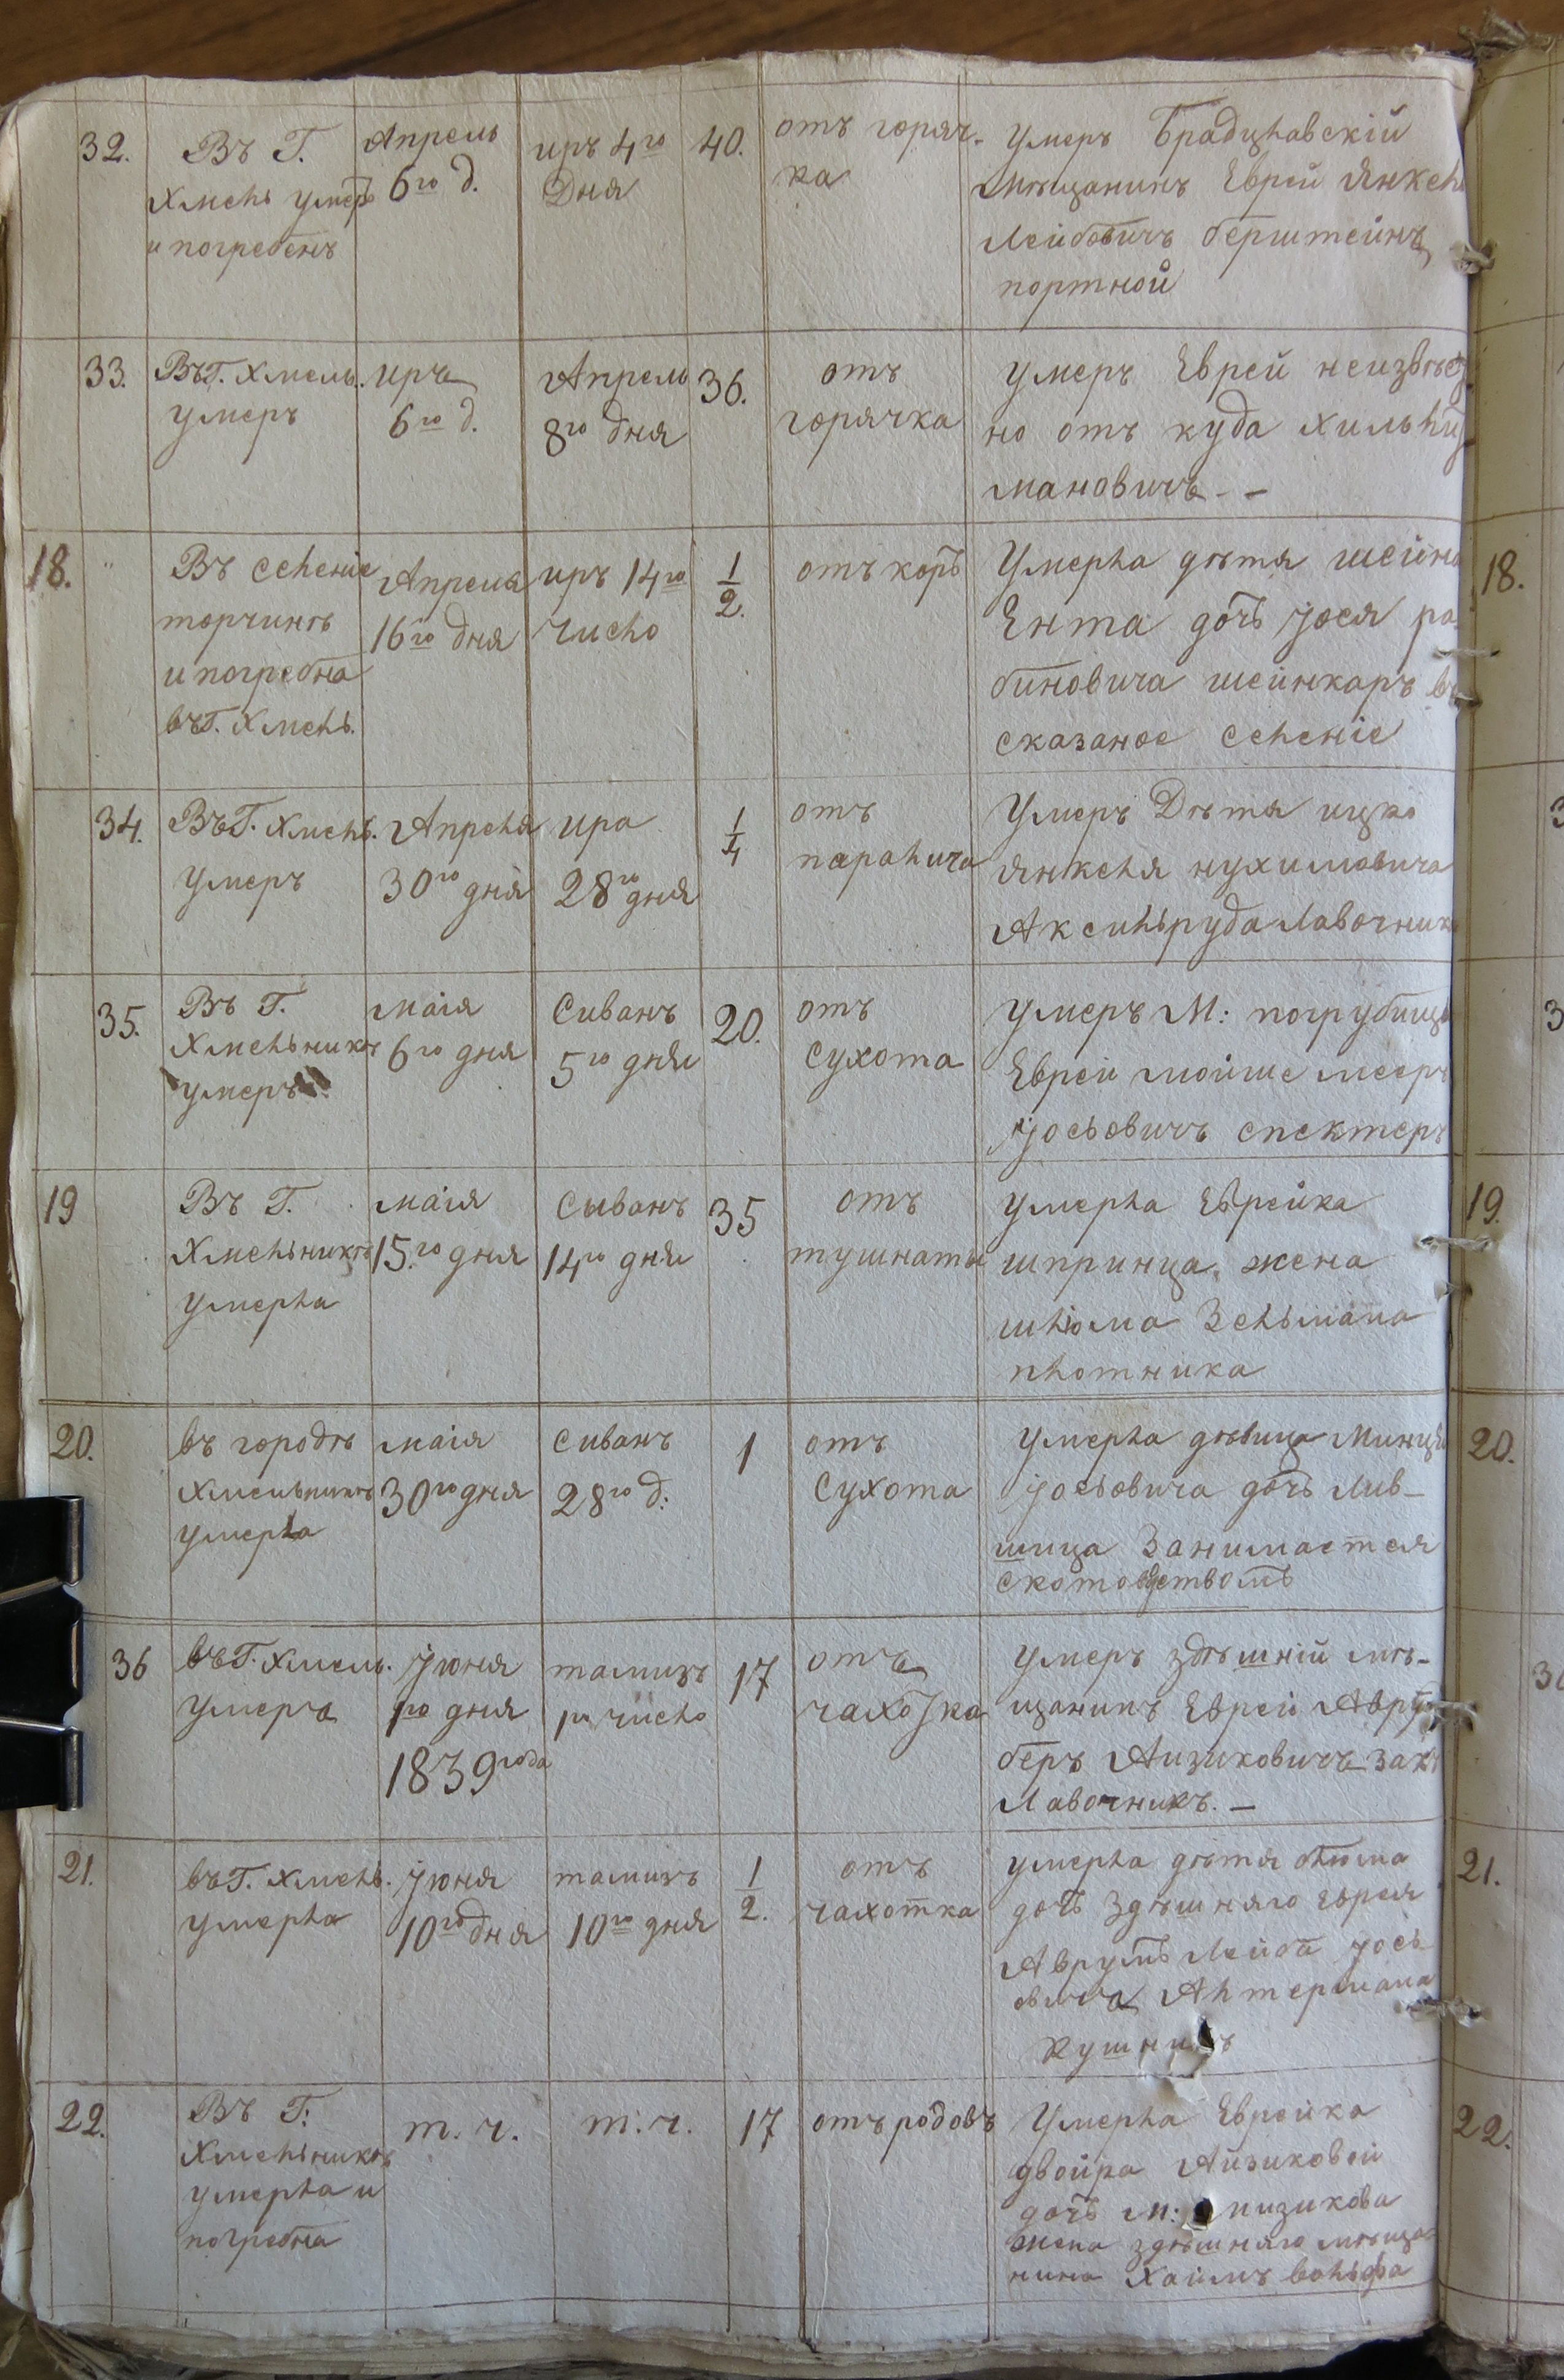 32.
Въ Г.
Хмель умеръ
и погребенъ
Апрель
6го д.
иръ 4го
Дня
40.
отъ горяч-
ка
умеръ Брацлавскій
Мѣщанинъ Еврей Янкель
Лейбовичъ берштейнъ
портной
33.
Въ Г. Хмель.
умеръ
иръ
6го д.
Апрель
8го дня
36.
отъ
горячка
умеръ Еврей неизвѣст
но отъ куда
мановичъ - -
18.
Въ селеніе
торчинѣ
и погребна
въ Г. Хмель.
Апреля
16го дня
иръ 14го
число
1/2.
отъ коръ
Умерла дѣтя шейна
Ента дочъ Јося ра-
биновича шейнкаръ въ
сказаное селеніе
18.
34.
Въ Г. Хмель.
умеръ
Апреля
30го дня
ира
28го дня
1/4
отъ
паралича
Умеръ Дѣтя ицко
Янкеля нухимовича
Аксильруда Лавочника
35.
Въ Г.
Хмельникѣ
умеръ
маія
6го дня
Сиванъ
5го дня
20.
отъ
сухота
умеръ М: погрубище
Еврей мойше мееръ
Јосьовичъ спектеръ
19
Въ Г.
Хмельникѣ
умерла
маія
15го дня
Сыванъ
14го дня
35
отъ
тушнаты
умерла Еврейка
шпринца жена
шлюма Зельмана
плотника
19.
20.
въ городѣ
Хмельникѣ
умерла
маія
30го дня
сиванъ
28го д:
1
отъ
сухота
умерла дѣвица Минця
Јосьовича дочъ Лив-
шица Занимается
скотоводствомъ
20.
36
въ Г. Хмель.
умеръ
Јюня
1го дня
1839 года
тамизъ
1го число
17
отъ
чахотка
умеръ здѣшній мѣ-
щанинъ Еврей Аврум
беръ Аизиковичъ закъ
Лавочникъ. -
21.
въ Г. Хмель.
умерла
Јюня
10го дня
тамизъ
10го дня
1/2.
отъ
чахотка
умерла дѣтя блюма
дочъ Здѣшняго еврея
Аврумъ Лейба Јось
овича Алтермана
кушниръ
21.
22.
Въ Г:
Хмельникѣ
умерла и
погребна
т. ч.
т. ч.
17
отъ родовъ
Умерла Еврейка
двойра Айзиковой
дочъ М:
жена здѣшняго мѣща-
нина Хаимъ вольфа
22.